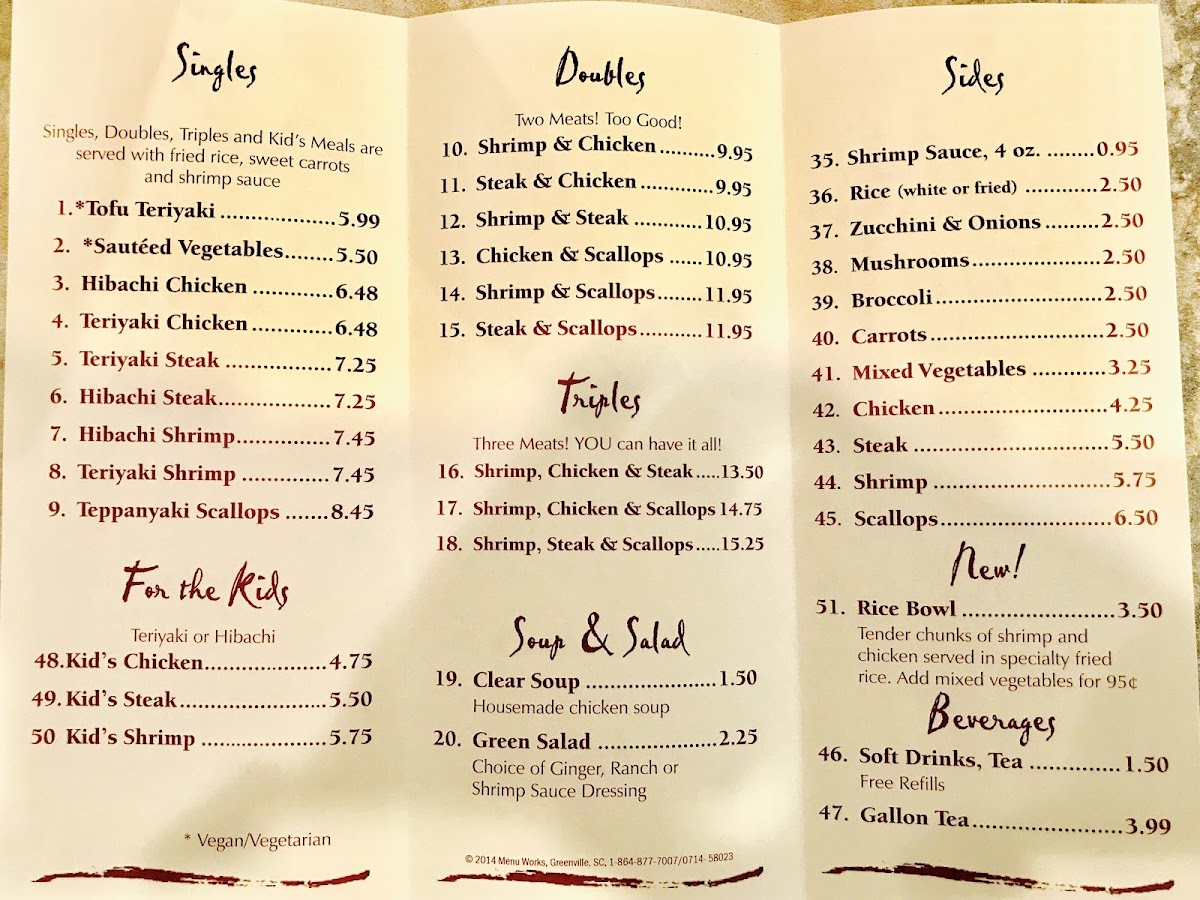 Singles
Singles, Doubles, Triples and Kid's Meals are
served with fried rice, sweet carrots
and shrimp sauce
1.*Tofu Teriyaki ..................5.99
2. *Sautéed Vegetables........5.50
3. Hibachi Chicken .............6.48
4. Teriyaki Chicken .............6.48
5. Teriyaki Steak .................7.25
6. Hibachi Steak..................7.25
7. Hibachi Shrimp...............7.45
8. Teriyaki Shrimp ..............7.45
9. Teppanyaki Scallops .......8.45
For the Kids
Teriyaki or Hibachi
48.Kid's Chicken....................4.75
49.Kid's Steak........................5.50
50 Kid's Shrimp ....................5.75
* Vegan/Vegetarian
Doubles
Two Meats! Too Good!
10. Shrimp & Chicken..........9.95
11. Steak & Chicken ............9.95
12. Shrimp & Steak .............10.95
13. Chicken & Scallops ......10.95
14. Shrimp & Scallops........11.95
15. Steak & Scallops...........11.95
Triples
Three Meats! YOU can have it all!
16. Shrimp, Chicken & Steak.....13.50
17. Shrimp, Chicken & Scallops 14.75
18. Shrimp, Steak & Scallops.....15.25
Soup & Salad
19. Clear Soup .....................1.50
Housemade chicken soup
20. Green Salad ...................2.25
Choice of Ginger, Ranch or
Shrimp Sauce Dressing
© 2014 Menu Works, Greenville, SC, 1-864-877-7007/0714- 58023
Sides
35. Shrimp Sauce, 4 oz. ........0.95
36. Rice (white or fried) ............2.50
37. Zucchini & Onions.........2.50
38. Mushrooms.....................2.50
39. Broccoli...........................2.50
40. Carrots............................2.50
41. Mixed Vegetables ............3.25
42. Chicken...........................4.25
43. Steak ...............................5.50
44. Shrimp ............................5.75
45. Scallops...........................6.50
New!
51. Rice Bowl ........................3.50
Tender chunks of shrimp and
chicken served in specialty fried
rice. Add mixed vegetables for 95¢
Beverages
46. Soft Drinks, Tea ..............1.50
Free Refills
47. Gallon Tea........................3.99